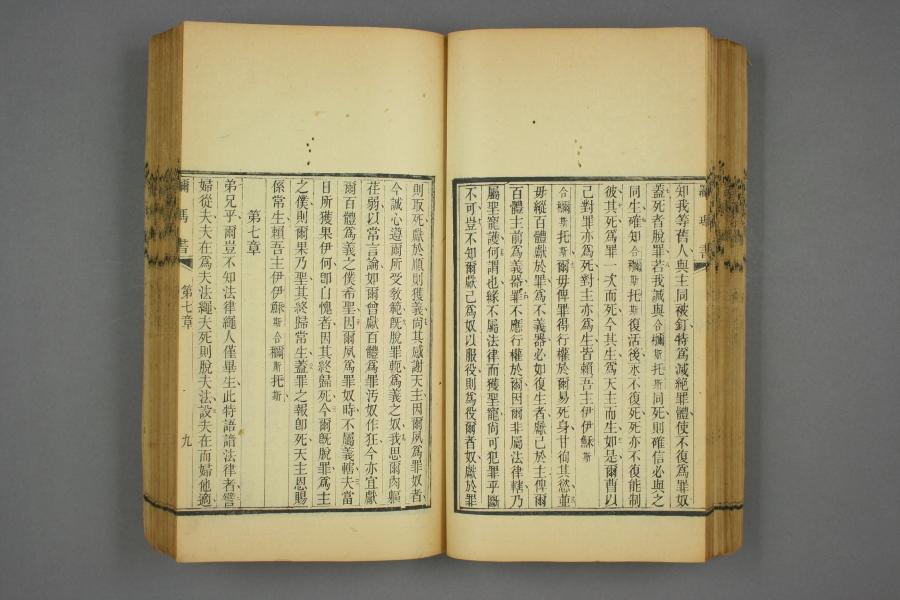 知我等舊人與主同被釘特爲減絕罪體使不復爲罪奴
蓋死者脫罪若我誠與合穪斯托斯同死則確信必與之
同生確知合穪斯托斯復活後永不復死死亦不復能制
彼其死爲罪一次而死今其生爲天主而生如是爾曹以
己對罪亦爲死對主亦爲生皆賴吾主伊伊穌斯
合穪斯托斯爾毋俾罪得行權於爾易死身甘徇其慾並
毋縱百體獻於罪爲不義器必如復生者獻己於主俾爾
百體主前爲義器罪不應行權於爾因爾非屬法律轄乃
屬聖寵護何謂也緣不屬法律而獲聖寵尙可犯罪乎斷
不可豈不知爾獻己爲奴以服役則爲役爾者奴獻於罪
則取死獻於順則獲義尙其感謝天主因爾夙爲罪奴者
今誠心遵爾所受教範旣脫罪軛爲義之奴我思爾肉軀
荏弱以常言諭如爾曾獻百體爲罪汚奴作狂今亦宜獻
爾百體爲義之僕希聖因爾夙爲罪奴時不屬義轄夫當
日所獲果伊何卽自愧者因其終歸死今爾旣脫罪爲主
之僕則爾果乃聖其終歸常生蓋罪之報卽死天主恩賜
係常生賴吾主伊伊穌斯合穪斯托斯
第七章
弟兄乎爾豈不知法律繩人僅畢生此特語諳法律者譬
婦從夫夫在爲夫法繩夫死則脫夫法設夫在而婦他適
爾馬書
第七章
九